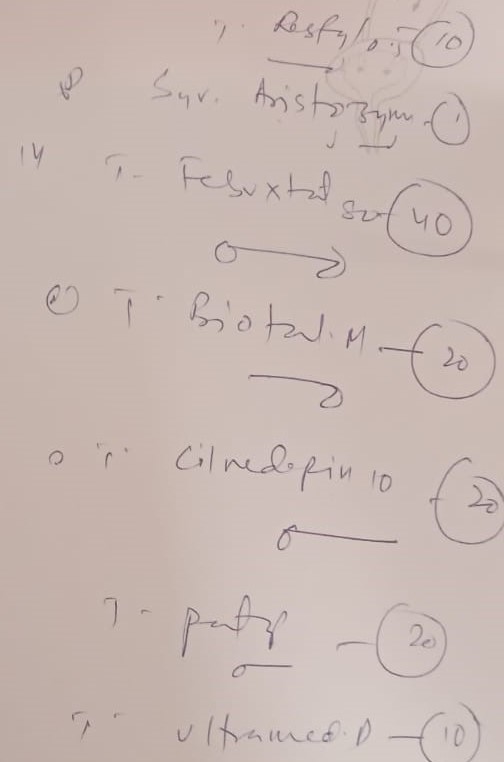 T. Restyl 0.5 10
Syr. Aristozym - 1
14 T. Febuxtal 80 40
T. Biotal.M - 20
T. Cilnedepin 10 20
T. - 20
T. Ultramed.D - 10